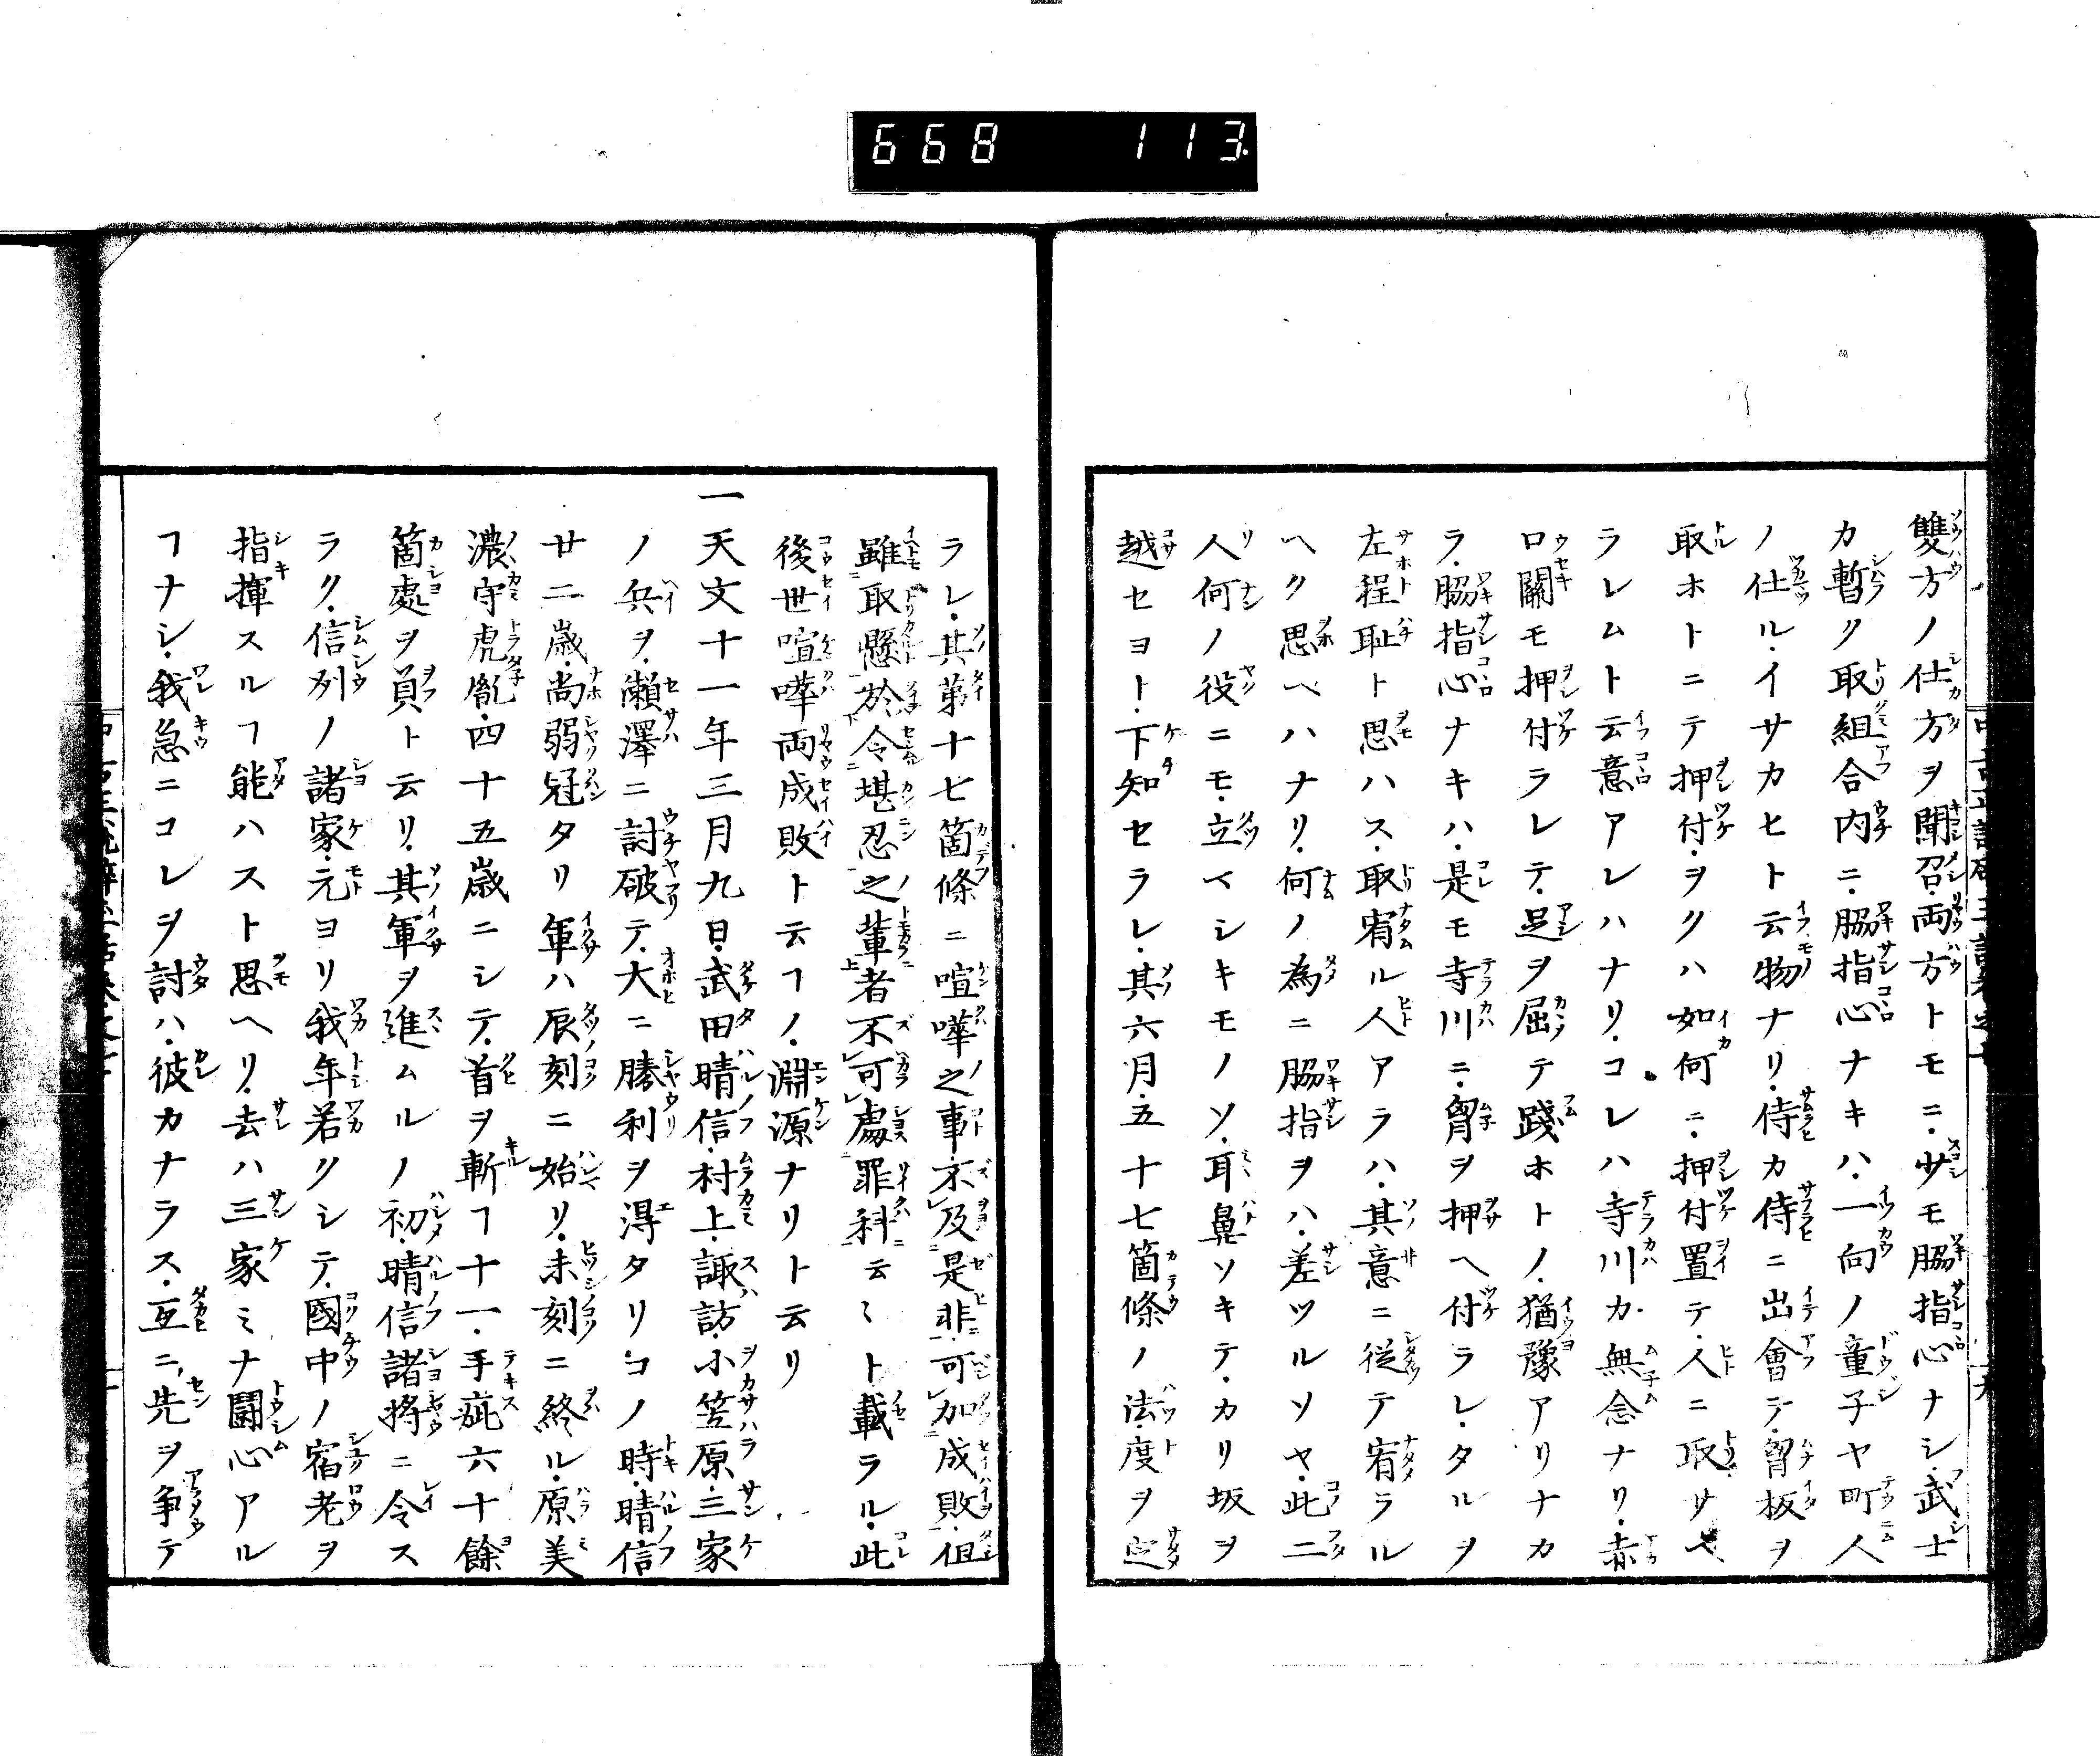 668 113
雙方ノ仕方ヲ聞召両方トモニ少モ脇指心ナシ武士
カ暫ク取組合内ニ脇指心ナキハ一向ノ童子ヤ町人
ノ仕ル・イサカヒト云物ナリ・侍カ侍ニ出會テ・胷板ヲ
取ホトニテ押付・ヲクハ如何ニ・押付置テ・人ニ取サヘ
ラレムト云意アレハナリ・コレハ寺川カ無念ナリ・赤
口關モ押付ラレテ・足ヲ屈テ踐ホトノ・猶豫アリナカ
ラ・脇指心ナキハ・是モ寺川ニ・胷ヲ押ヘ付ラレ・タルヲ
左程耻ト思ハス・取宥ル人アラハ・其意ニ従テ宥ラル
ヘク思ヘハナリ・何ノ為ニ脇指ヲハ・差ツルソヤ・此二
人何ノ役ニモ・立ヘシキモノソ・耳鼻ソキテ・カリ坂ヲ
越セヨト・下知セラレ・其六月・五十七箇條ノ法度ヲ定
ラレ・其第十七箇條ニ喧嘩之事・不及是非・可加成敗・但
雖取懸於令堪忍之輩者不可處罪科云〻ト載ラル・此
後世喧嘩両成敗ト云フノ・淵源ナリト云リ
一天文十一年三月九日・武田晴信・村上・諏訪・小笠原・三家
ノ兵ヲ・瀬澤ニ討破テ・大ニ勝利ヲ得タリコノ時・晴信
廿二歳・尚弱冠タリ軍ハ辰刻ニ始リ・未刻ニ終ル・原美
濃守虎胤・四十五歳ニシテ・首ヲ斬ヿ十一・手疵六十餘
箇處ヲ負ト云リ・其軍ヲ進ムルノ初・晴信諸將ニ令ス
ラク・信列ノ諸家・元ヨリ我年若クシテ・國中ノ宿老ヲ
指揮スルヿ能ハスト思ヘリ・去ハ三家ミナ闘心アル
ヿナシ・我急ニコレヲ討ハ・彼カナラス・互ニ・先ヲ争テ